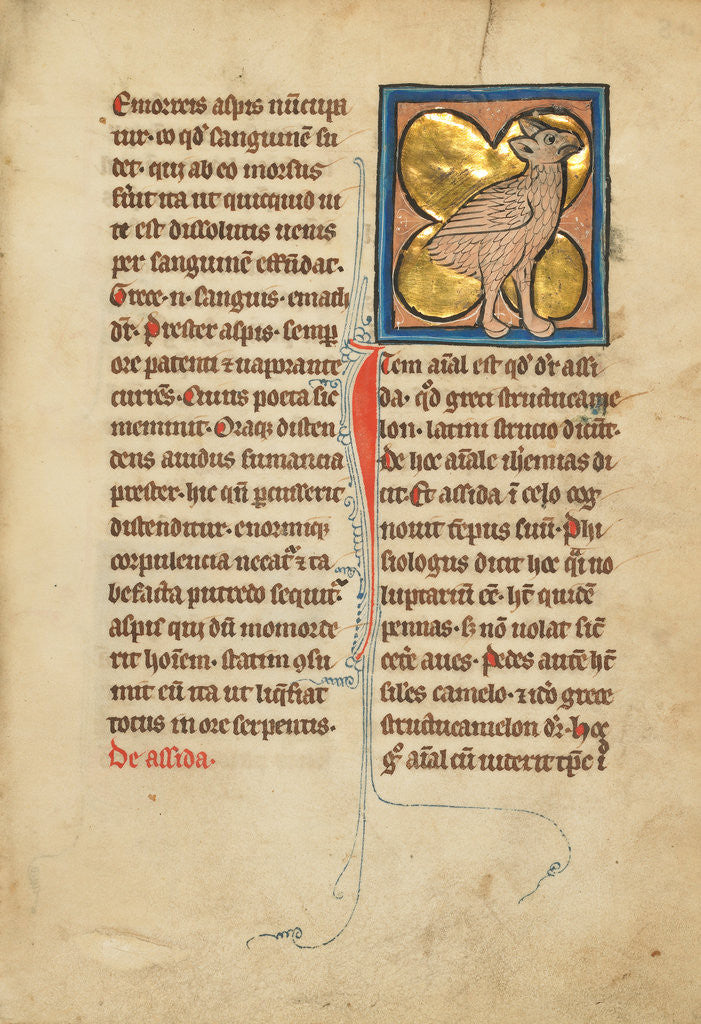 Emorreis aspis nūcupa
tur· eo qđ sanguinē su
det· qui ab eo morsus
fu̅it ita ut quicquid ui
te est dissolutis uenis
per sanguinē effūdat·
Grece· n̄· sanguis· emath
dr̄· Prester aspis· semp̲
ore patenti ⁊ uaporante
currēs· Cuius poeta sic
meminit· Oraqꝫ disten
dens auidus fumancia
prester· hic qn̄ p̲cusserit
distenditur· enormiqꝫ
corpulencia necat᷑ ⁊ ta
befacta putredo sequit᷑·
aspis qui dū momorde
rit hoīem· statim ꝯsu
mit eū ita ut liq̄fiat
totus in ore serpentis·
De assida·
Item aīal est qđ dr̄ assi
da· qđ greci structicame
lon· latini strucio dicūt·
De hoc aīale ih̅emias di
cit· Et assida ī celo cog
nouit t̄pus suū· Phi
siologus dicit hoc q̄i uo
luptariū eē· h̅t quidē
pennas· sꝫ nō uolat sic̄
cete̅ aues· Pedes autē h̅t
siles camelo· ⁊ iđo grece
structicamelon dr̄· hoc
gͦ aīal cū uiderit tp̄c ī